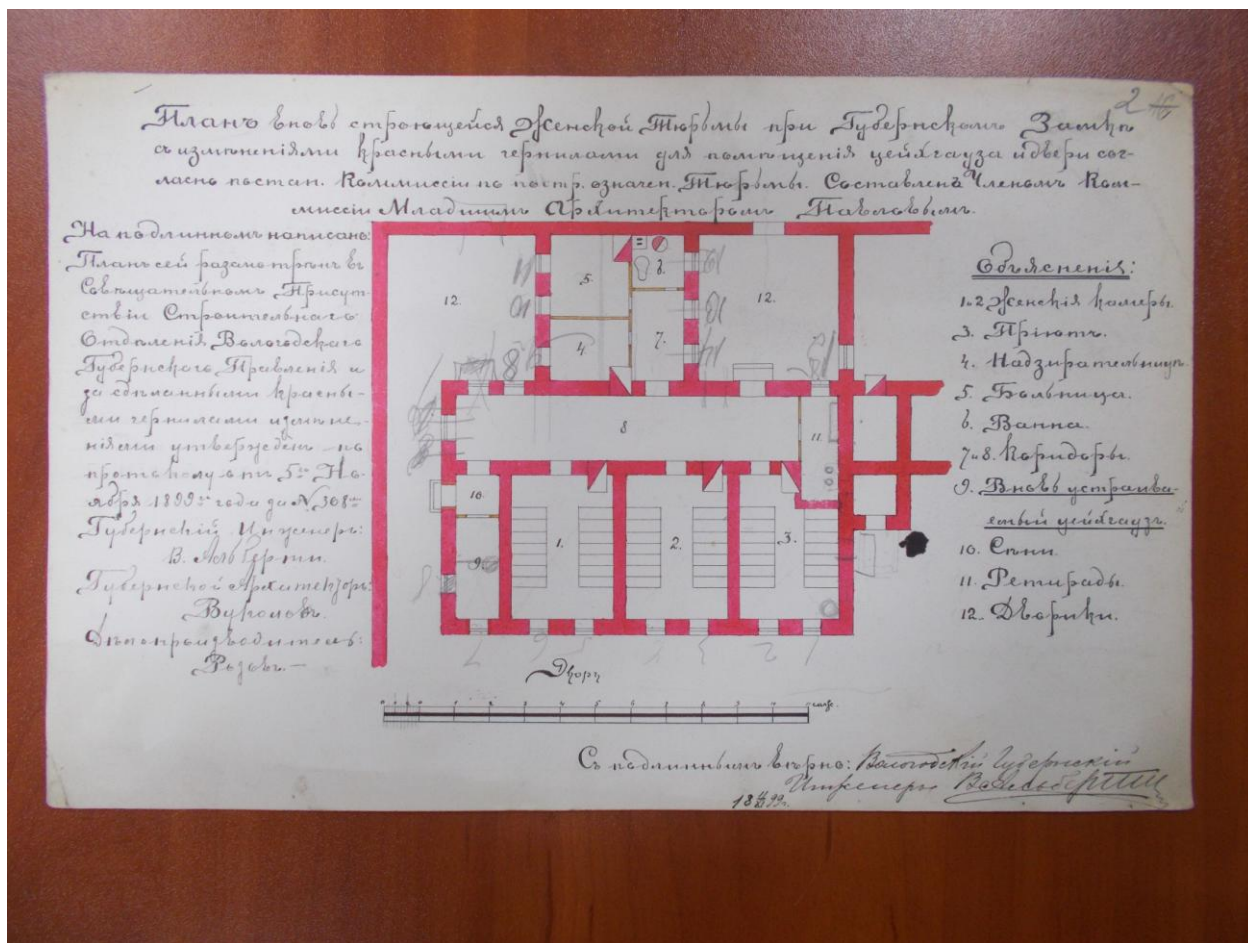 2
Планъ вновь строющейся Женской Тюрьмы при Губернскомъ Замкѣ
съ измѣненіями красными чернилами для помѣщенія цейхгауза и двери сог-
ласно постан. Коммиссіи по постр. означен. Тюрьмы. Составленъ Членомъ Ком-
миссіи Младшимъ Архитекторомъ Павловымъ.
На подлинномъ написано:
Планъ сей разсмотрѣнъ въ
Совѣщательномъ Присут-
ствіи Строительнаго
Отдѣленія Вологодскаго
Губернскаго Правленія и
за сдѣланными красны-
ми чернилами измѣне-
ніями утвержденъ по
протоколу отъ 5го Но-
ября 1899го года за № 308
Губернскій Инженеръ:
В. Альберти.
Губернскій Архитекторъ:
Дѣлопроизводитель:
Розовъ.
Объясненія:
1 и 2 Женскія камеры
3. Пріютъ.
4. Надзирательницы
5. Больница.
6. Ванна.
7 и 8. Коридоры.
9. Вновь устраива-
емый цейхгаузъ.
10. Сѣни.
11. Ретирады.
12. Дворики.
12.
5.
6.
12.
4.
7.
8
11.
10.
9
1.
2.
3.
7 6 5 4 3 2 1
Дворъ
саж.
Съ подлиннымъ вѣрно: Вологодскій Губернскій
Инженеръ В. Альберти